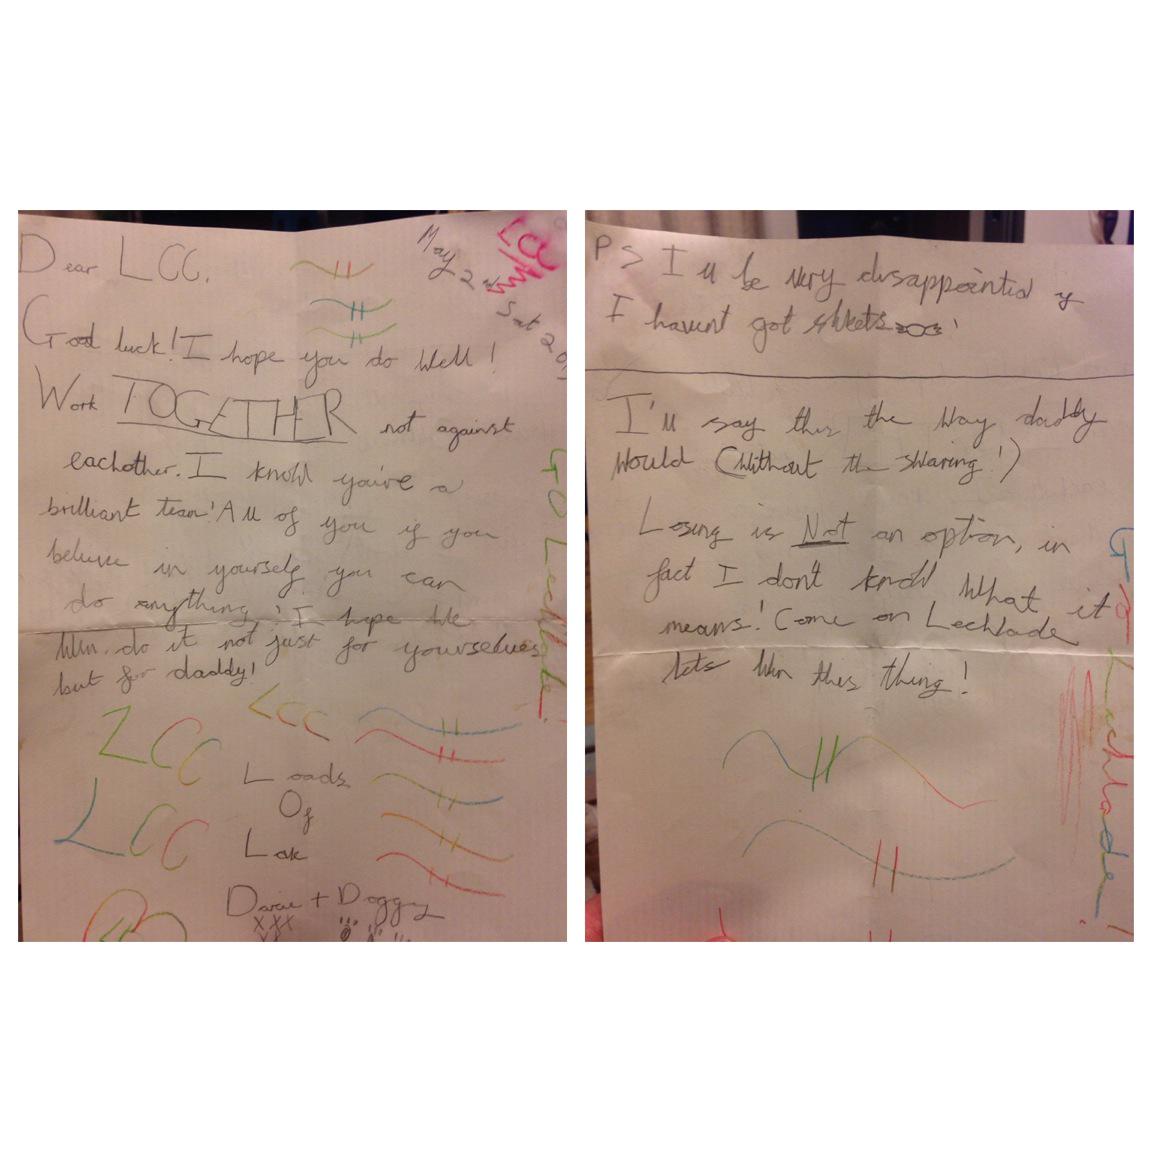 Dear LCC,
May 2nd
LCC
Sat 20
Good luck! I hope you do well!
Work TOGETHER not against
eachother. I know you've a
brilliant team! All of you if you
believe in yourself you can
do anything! I hope we
win. do it not just for yourselves
but for daddy!
GO Lechlade!
LCC
LCC
LCC
Loads
Of
Luk
Darcie + Doggy
XXX
PS I'll be very disappointid if
I havent got sweets
I'll say this the way daddy
would (without the swaring!)
Losing is Not an option, in
fact I don't know what it
means! Come on Lechlade
lets win this thing!
Go Lechlade!